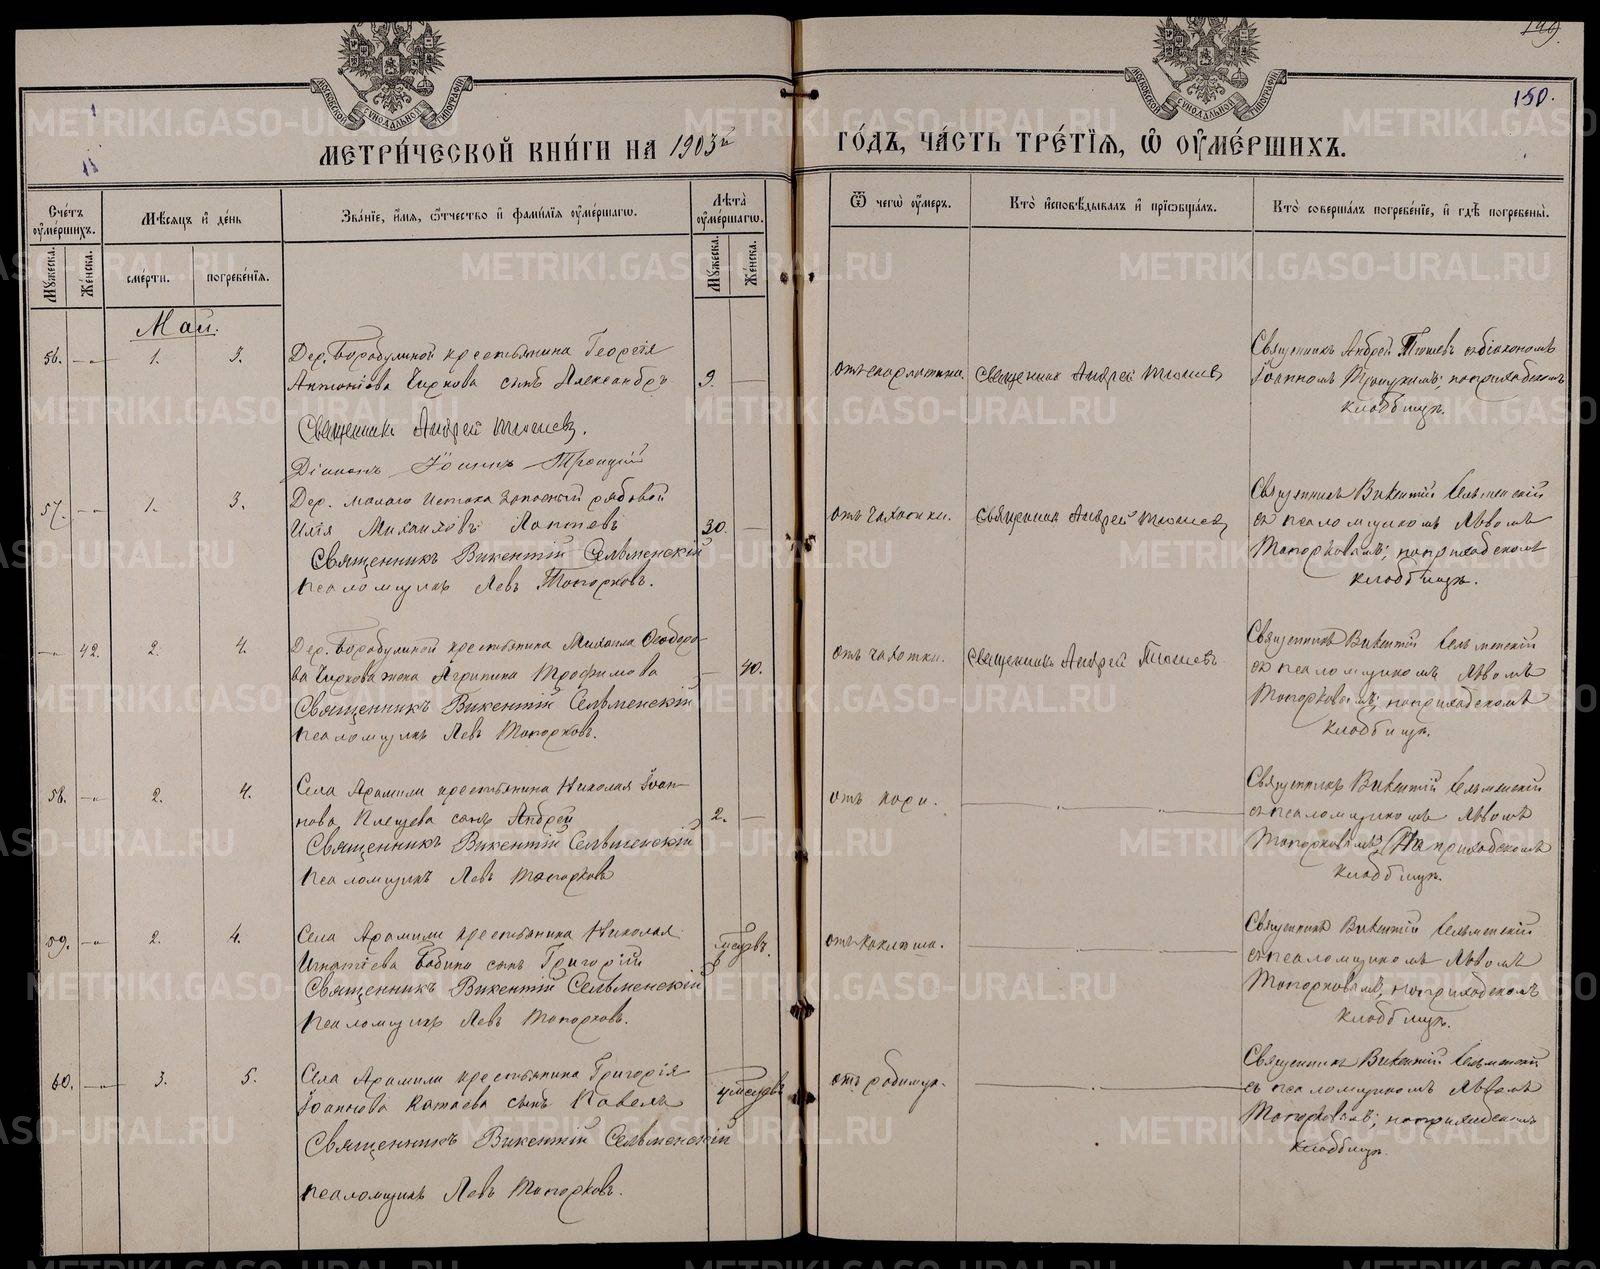 149.
150.
МОСКОВСКОЙ СѴНОДАЛЬНОЙ ТИПОГРАФІИ
МОСКОВСКОЙ СѴНОДАЛЬНОЙ ТИПОГРАФІИ
МЕТРИ́ЧЕСКОЙ КНИ́ГИ НА 1903й ГО́ДЪ, ЧА́СТЬ ТРЕ́ТЇѦ, Ѽ ОУ҆МЕ́РШИХЪ.
Сче́тъ оу҆ме́ршихъ.
Мѣ́сѧцъ и҆ де́нь
Зва́нїе, и҆́мѧ, ѻ҆́тчество и҆ фами́лїѧ оу҆ме́ршагѡ.
Лѣта̀ оу҆ме́ршагѡ.
Ѿ чегѡ̀ оу҆́меръ.
Кто̀ и҆сповѣ́дывалъ и҆ прїѡбща́лъ.
Кто̀ соверша́лъ погребе́нїе, и҆ гдѣ̀ погребены̀.
Му́жеска.
Же́нска.
сме́рти.
погребе́нїѧ.
Му́жеска.
Же́нска.
Май.
56.
1.
3.
Дер. Бородулиной крестьянина Георгія
Антоніева Чиркова сынъ Александръ
Священникъ Андрей Тюшев.
Діаконъ Іоаннъ Троицкій
9.
отъ скарлатина.
Священник Андрей Тюшев
Священникъ Андрей Тюшевъ съ діакономъ
Іоанномъ Троицкимъ; на приходскомъ
кладбищѣ.
57.
1.
3.
Дер. Малаго Истока запасный рядовой
Илія Михаиловъ Лаптевъ
Священникъ Викентій Сельменскій
Псаломщикъ Левъ Топорковъ.
30.
отъ чахотки.
Священник Андрей Тюшев
Священникъ Викентій Сельменскій
съ псаломщикомъ Львомъ
Топорковымъ; на приходскомъ
кладбищѣ.
42.
2.
4.
Дер. Бородулиной крестьянина Михаила Ѳеодоро-
ва Чиркова жена Агрипина Трофимова
Священникъ Викентій Сельменскій
Псаломщикъ Левъ Топорковъ.
40.
отъ чахотки.
Священникъ Андрей Тюшевъ
Священникъ Викентій Сельменскій
съ псаломщикомъ Львомъ
Топорковымъ; на приходскомъ
кладбищѣ.
58.
2.
4.
Села Арамили крестьянина Николая Іоан-
нова Плещева сынъ Андрей
Священникъ Викентій Сельменскій
Псаломщикъ Левъ Топорковъ
2.
отъ кори.
Священникъ Викентій Сельменскій
съ псаломщикомъ Львомъ
Топорковымъ; На приходскомъ
кладбищѣ.
59.
2.
4.
Села Арамили крестьянина Николая
Игнатіева Бабина сынъ Григорій
Священникъ Викентій Сельменскій
Псаломщикъ Левъ Топорковъ.
отъ коклюша.
Священникъ Викентій Сельменскій
съ псаломщикомъ Львомъ
Топорковымъ; на приходскомъ
кладбищѣ.
60.
3.
5.
Села Арамили крестьянина Григорія
Іоаннова Катаева сынъ Павелъ
Священникъ Викентій Сельменскій
Псаломщикъ Левъ Топорковъ.
4 месяцевъ
отъ родимца.
Священникъ Викентій Сельменскій
съ псаломщикомъ Львомъ
Топорковымъ; на приходскомъ
кладбищѣ.
METRIKI.GASO-URAL.RU